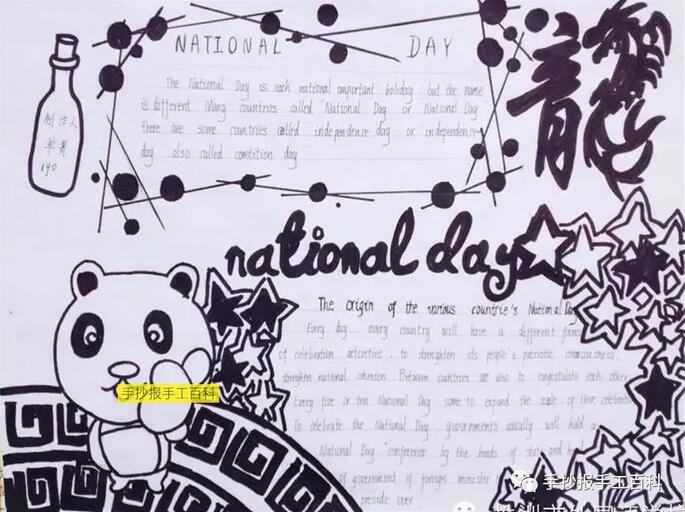 NATIONAL DAY
The National Day is each national important holiday, but the name
is different Many countries called National Day or National Day
there are some countries called independence day or independence
day also called constition day
龍
制作人
national day
The origin of the various countrie's National Day
Every day every country will have a different forms
of celebration activities, to strengthen its people's patriotic consciousness,
strengthen national cohesion Between countries are also to congratulate each other
Every five or ten National Day some to expand the scale of their celebrate
To celebrate the National Day governments usually will hold a
National Day conference by the heads of state and
of government of foreign minister
provide over
手抄报手工百科
手抄报手工百科